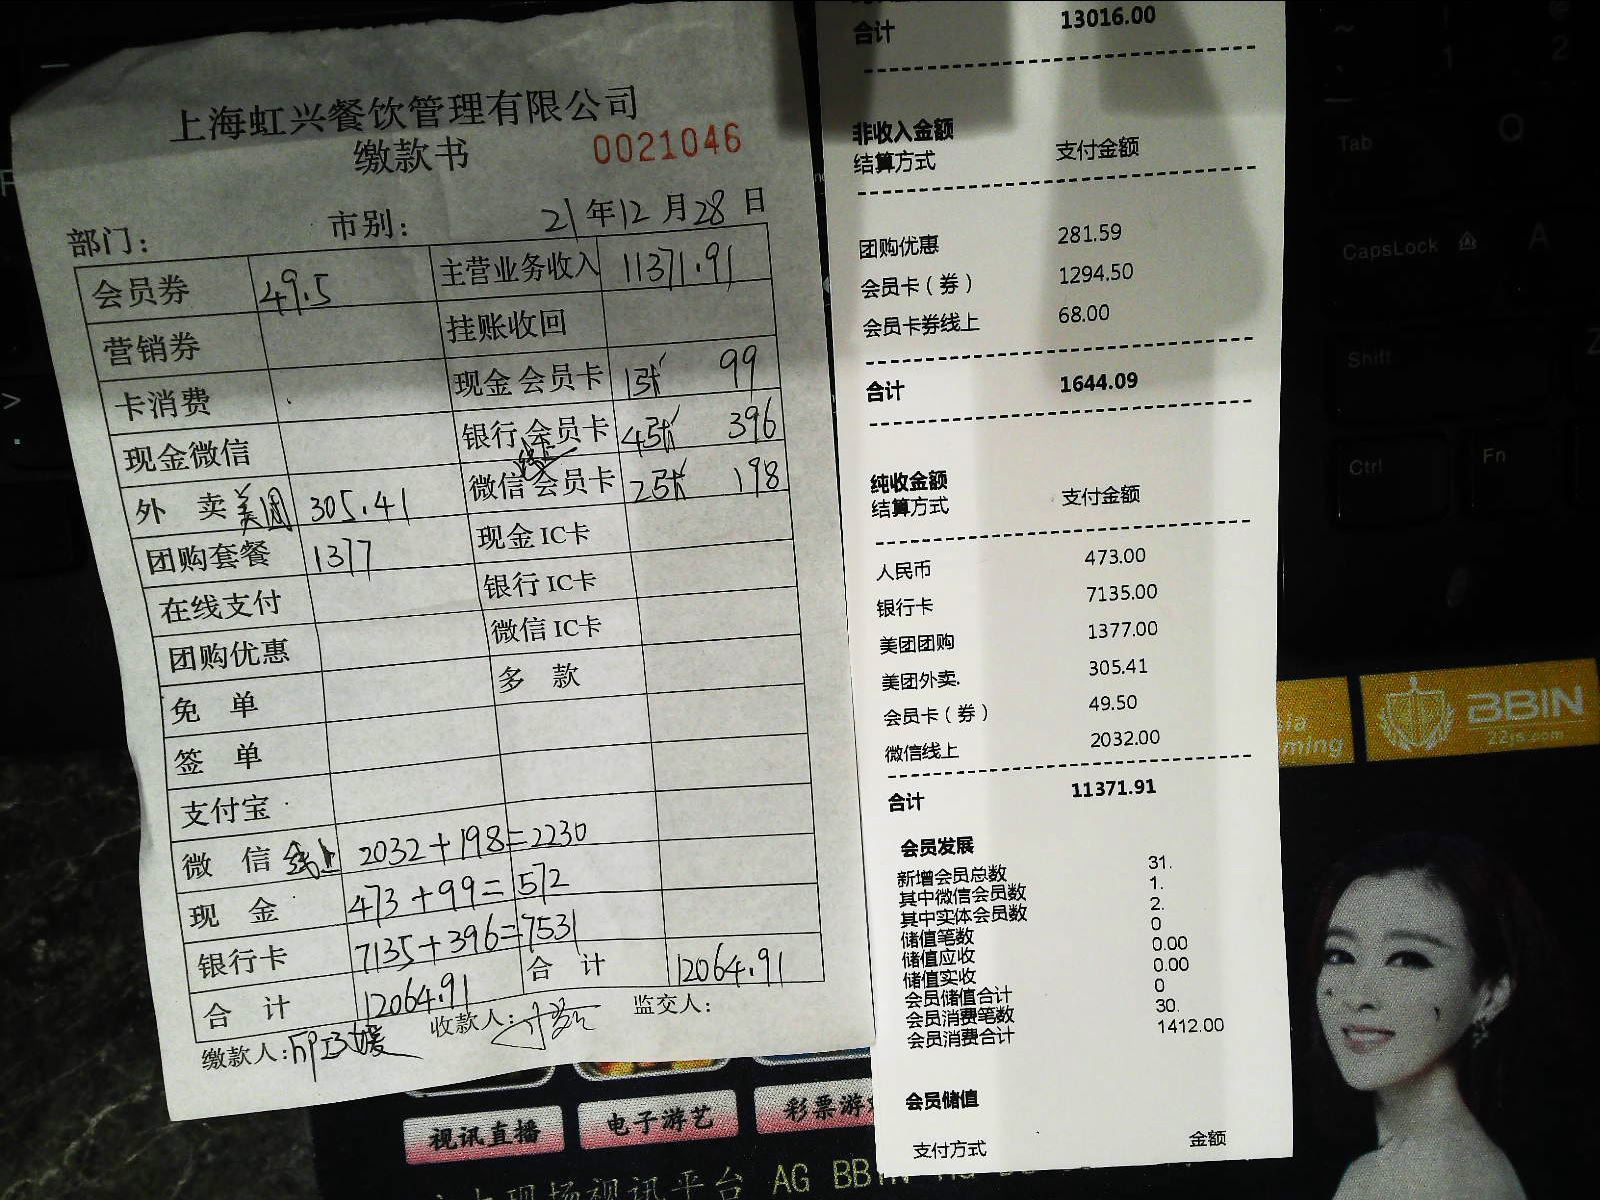 上海虹兴餐饮管理有限公司
缴款书 0021046
部门： 市别： 21年12月28日
会员券 49.5 主营业务收入 11371.91
营销券 挂账收回
卡消费 现金会员卡 1张 99
现金微信 银行会员卡 4张 396
外 卖 美团 305.41 微信会员卡 2张 198
团购套餐 1377 现金IC卡
在线支付 银行IC卡
团购优惠 微信IC卡
免 单 多 款
签 单
支付宝
微 信 线上 2032+198=2230
现 金 473+99=572
银行卡 7135+396=7531
合 计 12064.91 合 计 12064.91
缴款人： 收款人： 监交人：
合计 13016.00
非收入金额
结算方式 支付金额
团购优惠 281.59
会员卡（券） 1294.50
会员卡券线上 68.00
合计 1644.09
纯收金额
结算方式 支付金额
人民币 473.00
银行卡 7135.00
美团团购 1377.00
美团外卖. 305.41
会员卡（券） 49.50
微信线上 2032.00
合计 11371.91
会员发展
新增会员总数 31.
其中微信会员数 1.
其中实体会员数 2.
储值笔数 0
储值应收 0.00
储值实收 0.00
会员储值合计 0
会员消费笔数 30.
会员消费合计 1412.00
会员储值
支付方式 金额
Tab
Q
CapsLock
A
Shift
Z
Ctrl
Fn
BBIN
22js.com
视讯直播
电子游艺
彩票游
现场视讯平台 AG BB